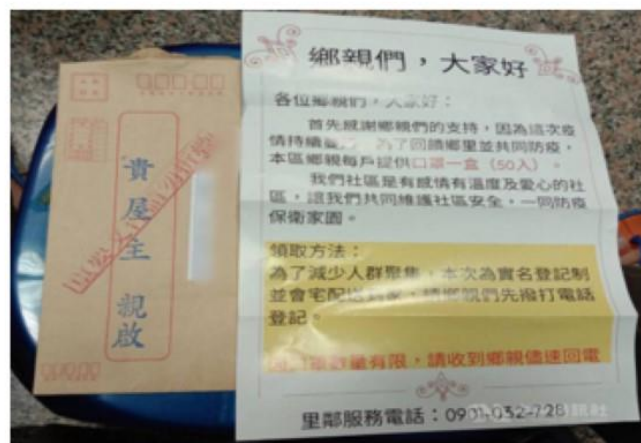 貴屋主 親啟
鄉親們，大家好
各位鄉親們，大家好：
首先感謝鄉親們的支持，因為這次疫
情持續，為了回饋鄉里並共同防疫，
本區鄉親每戶提供口罩一盒（50入）。
我們社區是有感情有溫度及愛心的社
區，讓我們共同維護社區安全，一同防疫
保衛家園。
領取方法：
為了減少人群聚集，本次為實名登記制
並會宅配送到家，請鄉親們先撥打電話
登記。
數量有限，請收到鄉親儘速回電
里鄰服務電話：0901-032-728